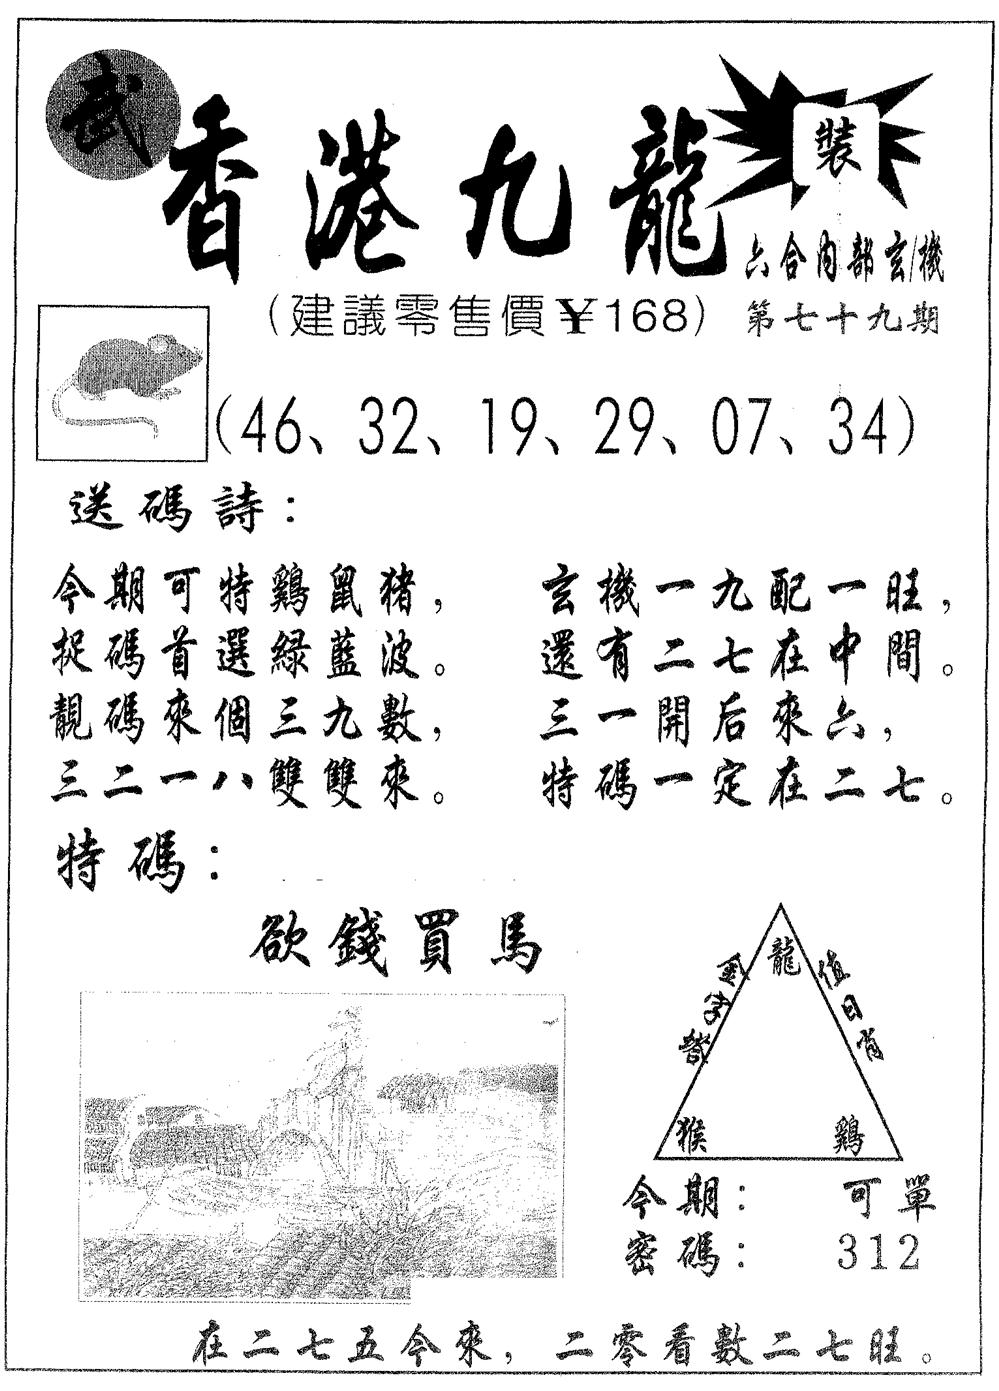 武
香港九龍
裝
六合内部玄機
(建議零售價¥168)
第七十九期
(46、32、19、29、07、34)
送碼詩：
今期可特鷄鼠猪，
捉碼首選緑藍波。
靚碼來個三九數，
三二一八雙雙來。
玄機一九配一旺，
還有二七在中間。
三一開后來六，
特碼一定在二七。
特碼：
欲錢買馬
龍
金字塔
值日肖
猴
鷄
今期：可單
密碼：312
在二七五今來，二零看數二七旺。